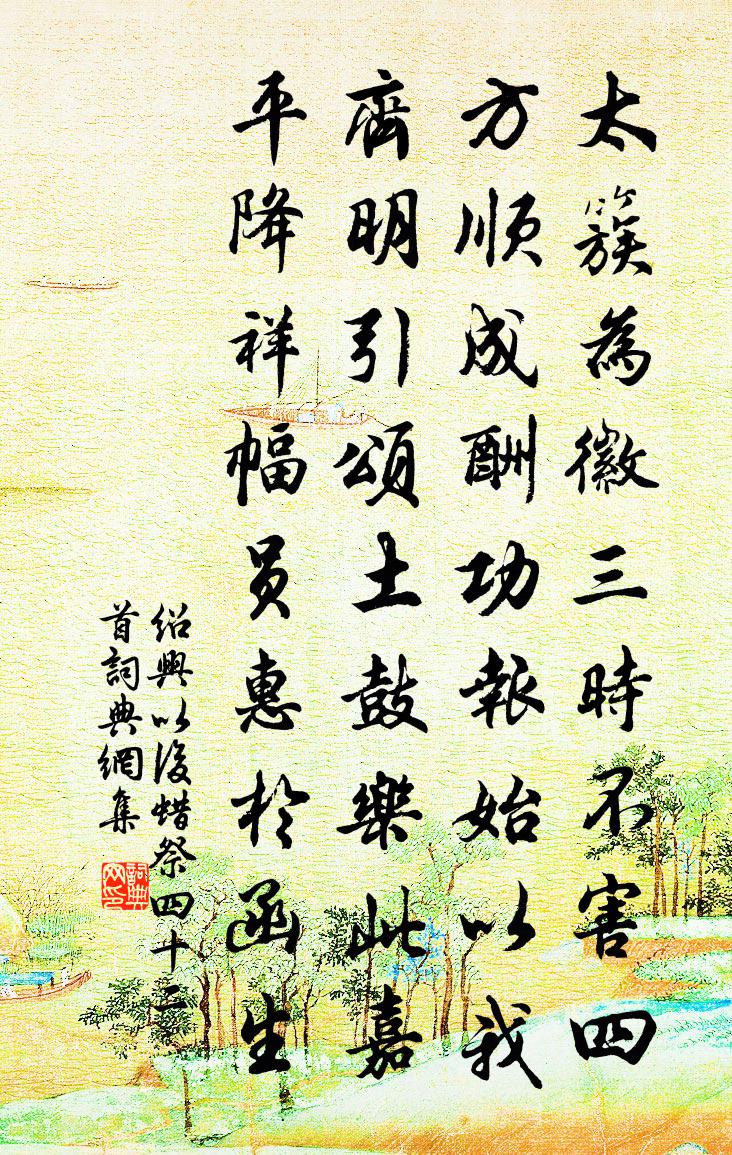 太簇為徽三時不害四
方順成酬功報始以我
齊明引頌土鼓樂此嘉
平降祥幅員惠於函生
紹興以後蜡祭四十二
首詞典網集
詞典
网印